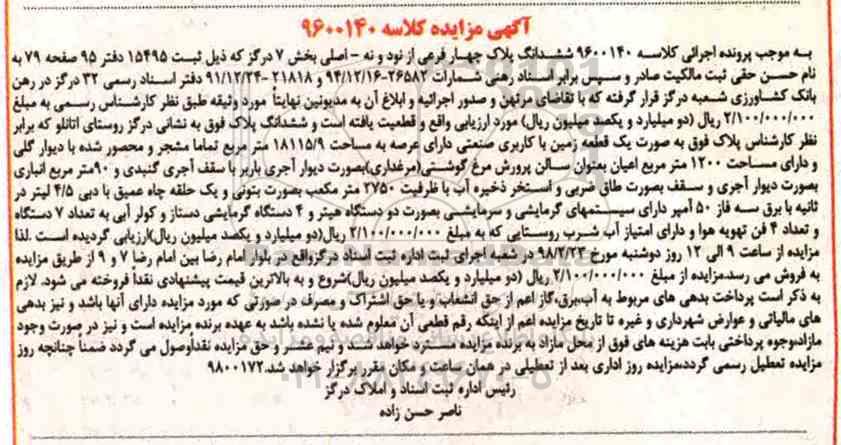 آگهی مزایده کلاسه ۹۶۰۰۱۴۰
به موجب پرونده اجرائی کلاسه ۹۶۰۰۱۴۰ ششدانگ پلاک چهار فرعی از نود و نه - اصلی بخش ۷ درگز که ذیل ثبت ۱۵۴۹۵ دفتر ۹۵ صفحه ۷۹ به
نام حسن حقی ثبت مالکیت صادر و سپس برابر اسناد رهنی شمارات ۲۶۵۸۲-۹۴/۱۲/۱۶ و ۲۱۸۱۸ -۹۱/۱۲/۲۴ دفتر اسناد رسمی ۳۲ درگز در رهن
بانک کشاورزی شعبه درگز قرار گرفته که با تقاضای مرتهن و صدور اجرائیه و ابلاغ آن به مدیونین نهایتاً مورد وثیقه طبق نظر کارشناس رسمی به مبلغ
۲/۱۰۰/۰۰۰/۰۰۰ ریال (دو میلیارد و یکصد میلیون ریال) مورد ارزیابی واقع و قطعیت یافته است و ششدانگ پلاک فوق به نشانی درگز روستای اتانلو که برابر
نظر کارشناس پلاک فوق به صورت یک قطعه زمین با کاربری صنعتی دارای عرصه به مساحت ۱۸۱۱۵/۹ متر مربع تماما مشجر و محصور شده با دیوار گلی
و دارای مساحت ۱۲۰۰ متر مربع اعیان بعنوان سالن پرورش مرغ گوشتی(مرغداری)بصورت دیوار آجری باربر با سقف آجری گنبدی و ۹۰متر مربع انباری
بصورت دیوار آجری و سقف بصورت طاق ضربی و استخر ذخیره آب با ظرفیت ۲۷۵۰ متر مکعب بصورت بتونی و یک حلقه چاه عمیق با دبی ۴/۵ لیتر در
ثانیه با برق سه فاز ۵۰ آمپر دارای سیستمهای گرمایشی و سرمایشی بصورت دو دستگاه هیتر و ۴ دستگاه گرمایشی دستاز و کولر آبی به تعداد ۷ دستگاه
و تعداد ۴ فن تهویه هوا و دارای امتیاز آب شرب روستایی که به مبلغ ۲/۱۰۰/۰۰۰/۰۰۰ ریال(دو میلیارد و یکصد میلیون ریال)ارزیابی گردیده است .لذا
مزایده از ساعت ۹ الی ۱۲ روز دوشنبه مورخ ۹۸/۲/۲۳ در شعبه اجرای ثبت اداره ثبت اسناد درگزواقع در بلوار امام رضا بین امام رضا ۷ و ۹ از طریق مزایده
به فروش می رسد.مزایده از مبلغ ۲/۱۰۰/۰۰۰/۰۰۰ ریال (دو میلیارد و یکصد میلیون ریال)شروع و به بالاترین قیمت پیشنهادی نقداً فروخته می شود. لازم
به ذکر است پرداخت بدهی های مربوط به آب،برق،گاز اعم از حق انشعاب و یا حق اشتراک و مصرف در صورتی که مورد مزایده دارای آنها باشد و نیز بدهی
های مالیاتی و عوارض شهرداری و غیره تا تاریخ مزایده اعم از اینکه رقم قطعی آن معلوم شده یا نشده باشد به عهده برنده مزایده است و نیز در صورت وجود
مازاد،وجوه پرداختی بابت هزینه های فوق از محل مازاد به برنده مزایده مسترد خواهد شد و نیم عشر و حق مزایده نقداًوصول می گردد ضمناً چنانچه روز
مزایده تعطیل رسمی گردد،مزایده روز اداری بعد از تعطیلی در همان ساعت و مکان مقرر برگزار خواهد شد.۹۸۰۰۱۷۲
رئیس اداره ثبت اسناد و املاک درگز
ناصر حسن زاده